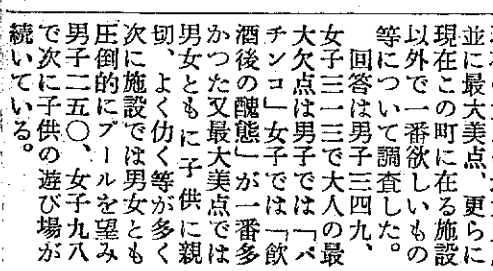 並に最大美点、更らに
現在この町に在る施設
以外で一番欲しいもの
等について調査した。
回答は男子三四九、
女子三一三で大人の最
大欠点は男子では「パ
チンコ」女子では「飲
酒後の醜態」が一番多
かつた又最大美点では
男女ともに子供に親
切、よく仂く等が多く
次に施設では男女とも
圧倒的にプールを望み
男子二五〇、女子九八
で次に子供の遊び場が
続いている。